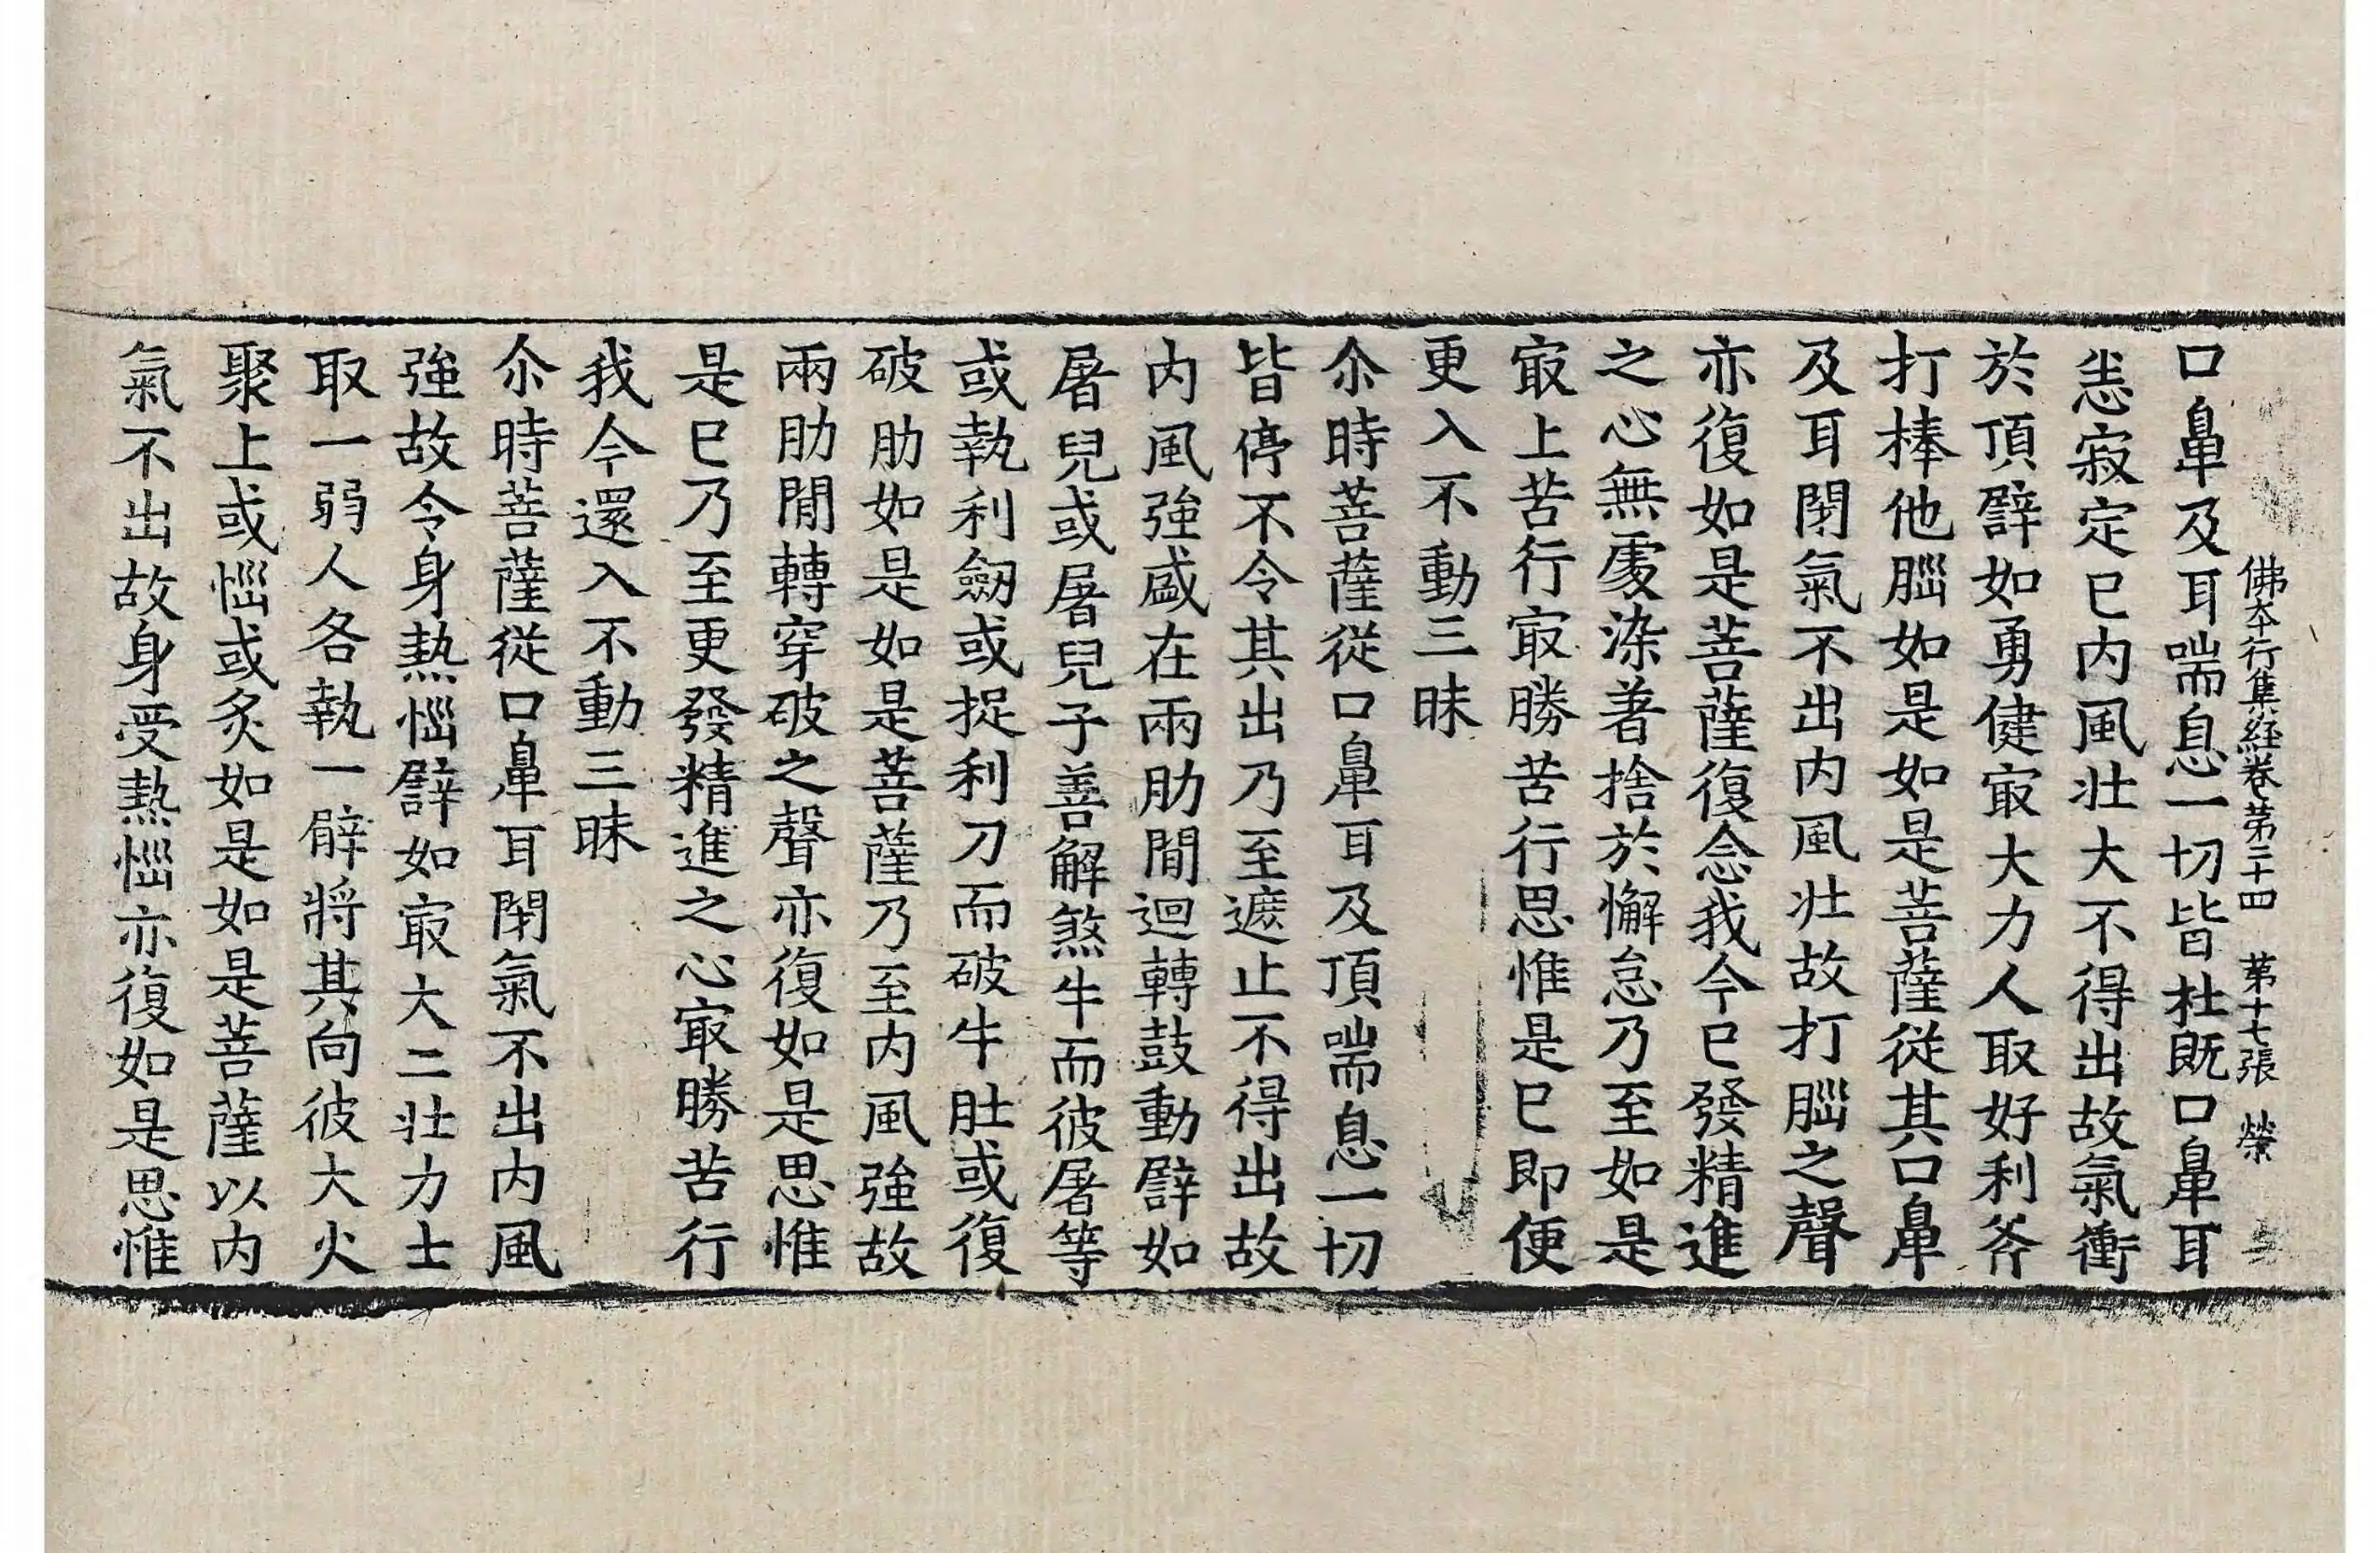 佛本行集經卷第二十四 苐十七張 榮
口鼻及耳喘息一切皆杜既口鼻耳
恙寂定巳内風壯大不得出故氣衝
於頂譬如勇健㝡大力人取好利斧
打棒他腦如是如是菩薩從其口鼻
及耳閉氣不出内風壯故打腦之聲
亦復如是菩薩復念我今巳發精進
之心無處染著捨於懈怠乃至如是
㝡上苦行㝡勝苦行思惟是巳即便
更入不動三昧
尒時菩薩從口鼻耳及頂喘息一切
皆停不令其出乃至遮止不得出故
内風強盛在兩肋間迴轉鼓動譬如
屠兒或屠兒子善解煞牛而彼屠等
或執利劒或捉利刀而破牛肚或復
破肋如是如是菩薩乃至内風強故
兩肋間轉穿破之聲亦復如是思惟
是巳乃至更發精進之心㝡勝苦行
我今還入不動三昧
尒時菩薩從口鼻耳閉氣不出内風
強故令身熱惱譬如㝡大二壯力士
取一弱人各執一臂將其向彼大火
聚上或惱或炙如是如是菩薩以内
氣不出故身受熱惱亦復如是思惟